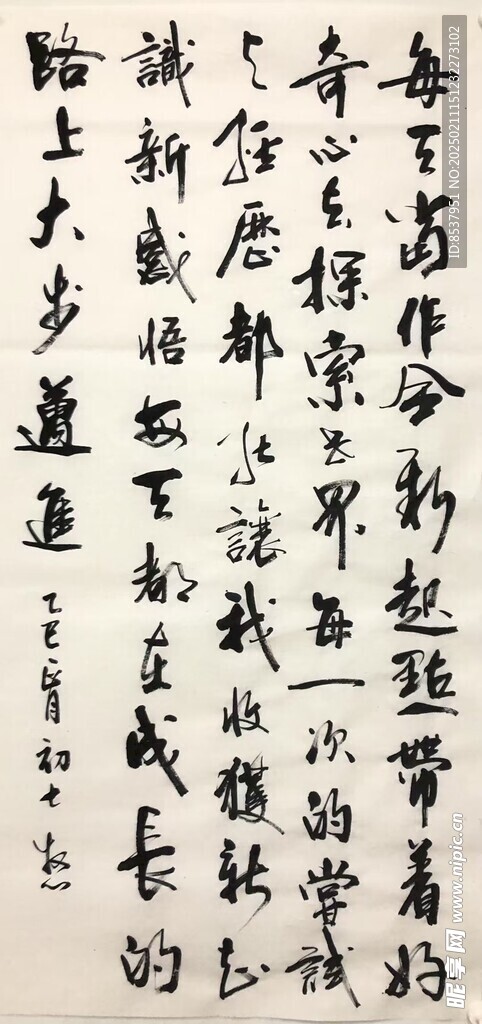 每天當作全新起點帶着好
奇心去探索世界每一次的嘗試
与經歷都能讓我收獲新知
識新感悟每天都在成長的
路上大步邁進
乙巳正月初七
ID:8537951 NO:20250211151232273102
昵享网 www.nipic.cn